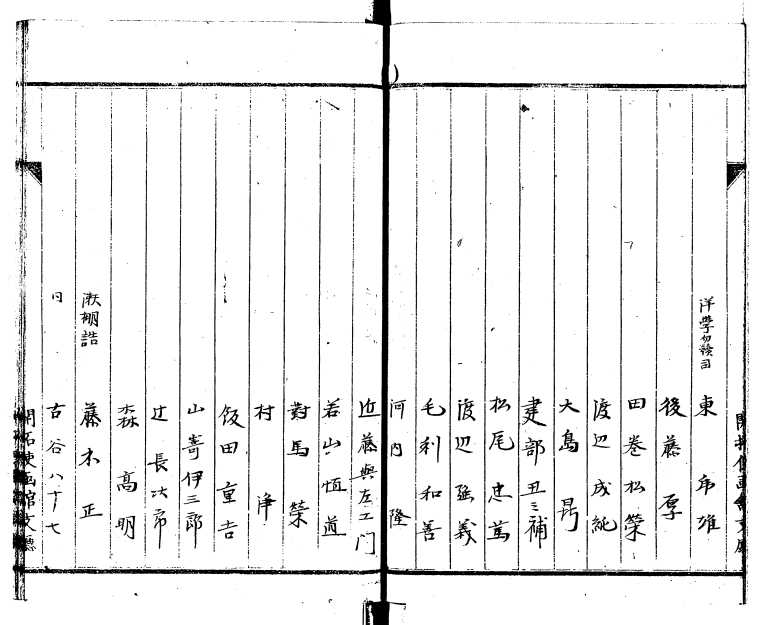 洋学
東
後藤厚
田巻松榮
渡辺成純
大島昂
建部丑三補
松尾忠篤
渡辺強義
毛利和善
河内隆
近藤與左工门
若山恒道
對馬榮
村浄
飯田重吉
山㟢伊三郎
辻長次郎
森高明
詰 藤木正
同 古谷八十七
開拓使函館支廳